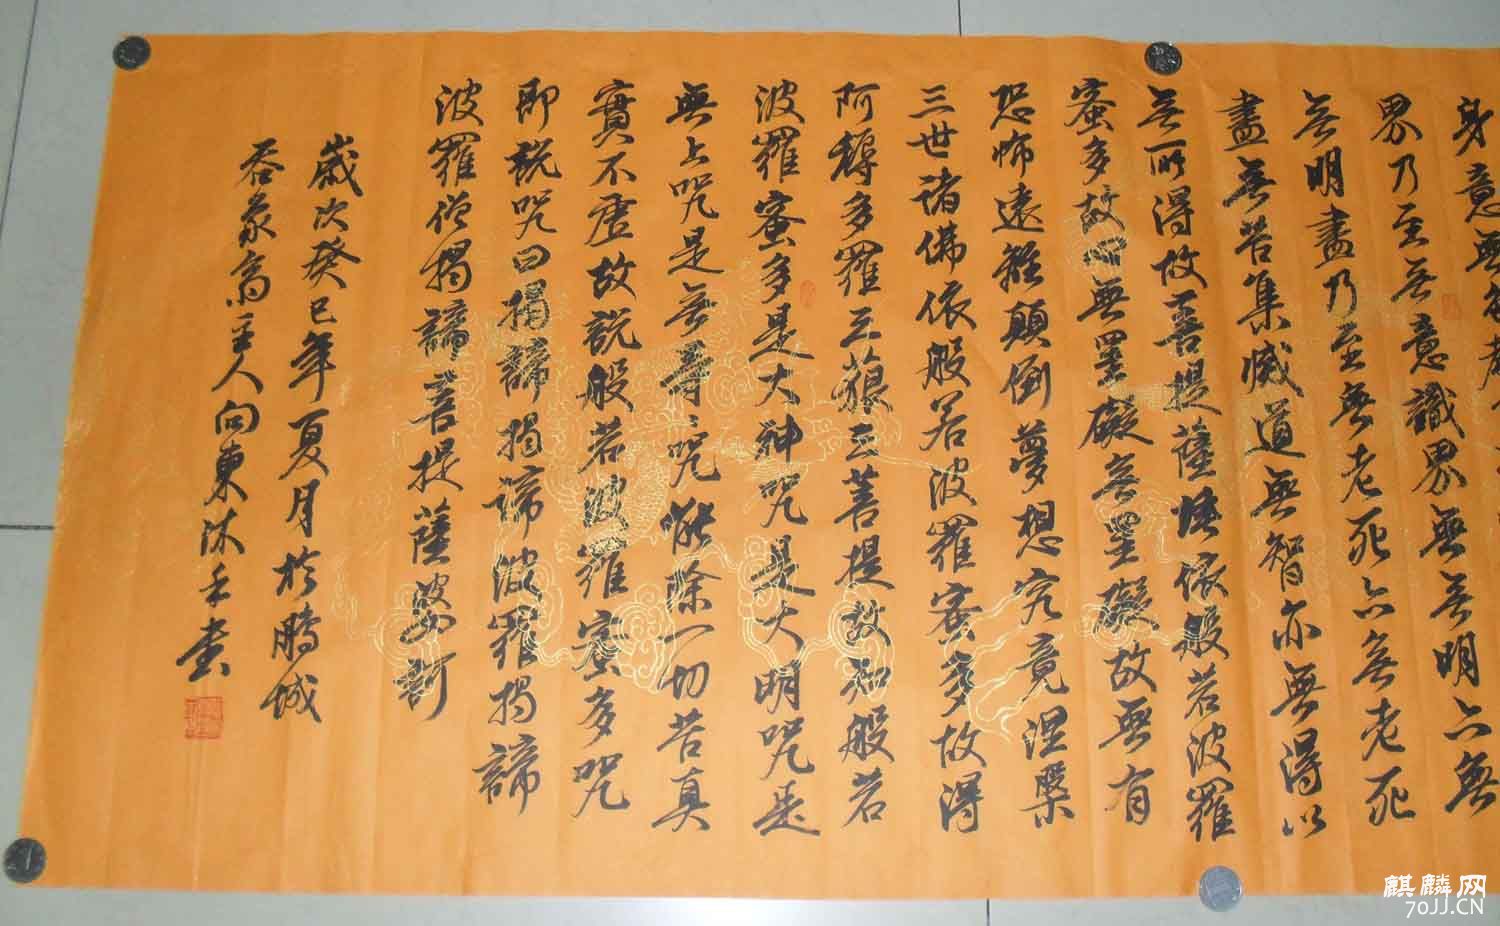 身意無色聲
界乃至無意識界無無明亦無
無明盡乃至無老死亦無老死
盡無苦集滅道無智亦無得以
無所得故菩提薩埵依般若波羅
蜜多故心無罣礙無罣礙故無有
恐怖遠離顛倒夢想究竟涅槃
三世諸佛依般若波羅蜜多故得
阿耨多羅三藐三菩提故知般若
波羅蜜多是大神咒是大明咒是
無上咒是無等等咒能除一切苦真
實不虛故說般若波羅蜜多咒
即說咒曰揭諦揭諦波羅揭諦
波羅僧揭諦菩提薩婆訶
歲次癸巳年夏月於鵬城
吞象斋主人向東沐手書
麒麟网
70JJ.CN